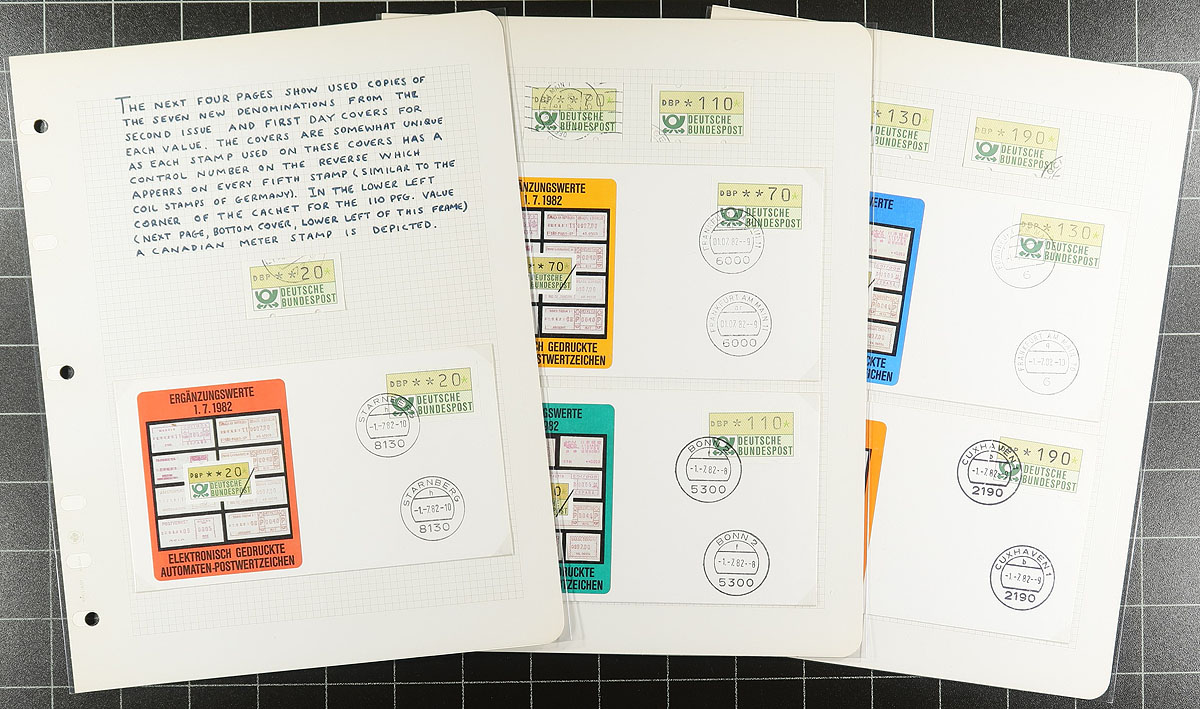 THE NEXT FOUR PAGES SHOW USED COPIES OF
THE SEVEN NEW DENOMINATIONS FROM THE
SECOND ISSUE AND FIRST DAY COVERS FOR
EACH VALUE. THE COVERS ARE SOMEWHAT UNIQUE
AS EACH STAMP USED ON THESE COVERS HAS A
CONTROL NUMBER ON THE REVERSE WHICH
APPEARS ON EVERY FIFTH STAMP (SIMILAR TO THE
COIL STAMPS OF GERMANY). IN THE LOWER LEFT
CORNER OF THE CACHET FOR THE 110 PFG. VALUE
(NEXT PAGE, BOTTOM COVER, LOWER LEFT OF THIS FRAME)
A CANADIAN METER STAMP IS DEPICTED.
DBP **20*
DEUTSCHE
BUNDESPOST
ERGÄNZUNGSWERTE
1.7.1982
DBP **20*
DEUTSCHE
BUNDESPOST
ELEKTRONISCH GEDRUCKTE
AUTOMATEN-POSTWERTZEICHEN
DBP **20*
DEUTSCHE
BUNDESPOST
STARNBERG
h
-1.-7.82-10
8130
STARNBERG
h
-1.-7.82-10
8130
DBP **70*
DEUTSCHE
BUNDESPOST
DBP *110*
DEUTSCHE
BUNDESPOST
GÄNZUNGSWERTE
1.7.1982
70*
CH GEDRUCKTE
STWERTZEICHEN
DBP **70*
DEUTSCHE
BUNDESPOST
01.07.82.--9
6000
FRANKFURT AM MAIN 11
01.07.82.--9
6000
GSWERTE
982
DRUCKTE
ZEICHEN
DBP *110*
DEUTSCHE
BUNDESPOST
BONN 2
-1.-7.82.--8
5300
BONN 2
-1.-7.82.--8
5300
*130*
DEUTSCHE
BUNDESPOST
DBP *190*
DEUTSCHE
BUNDESPOST
WERTE
CKTE
ICHEN
DBP *130*
DEUTSCHE
BUNDESPOST
6
FRANKFURT AM MAIN
-1.-7.82-10
6
DBP *190*
DEUTSCHE
BUNDESPOST
CUXHAVEN 1
-1.-7.82.--9
2190
CUXHAVEN 1
b
-1.-7.82.--9
2190